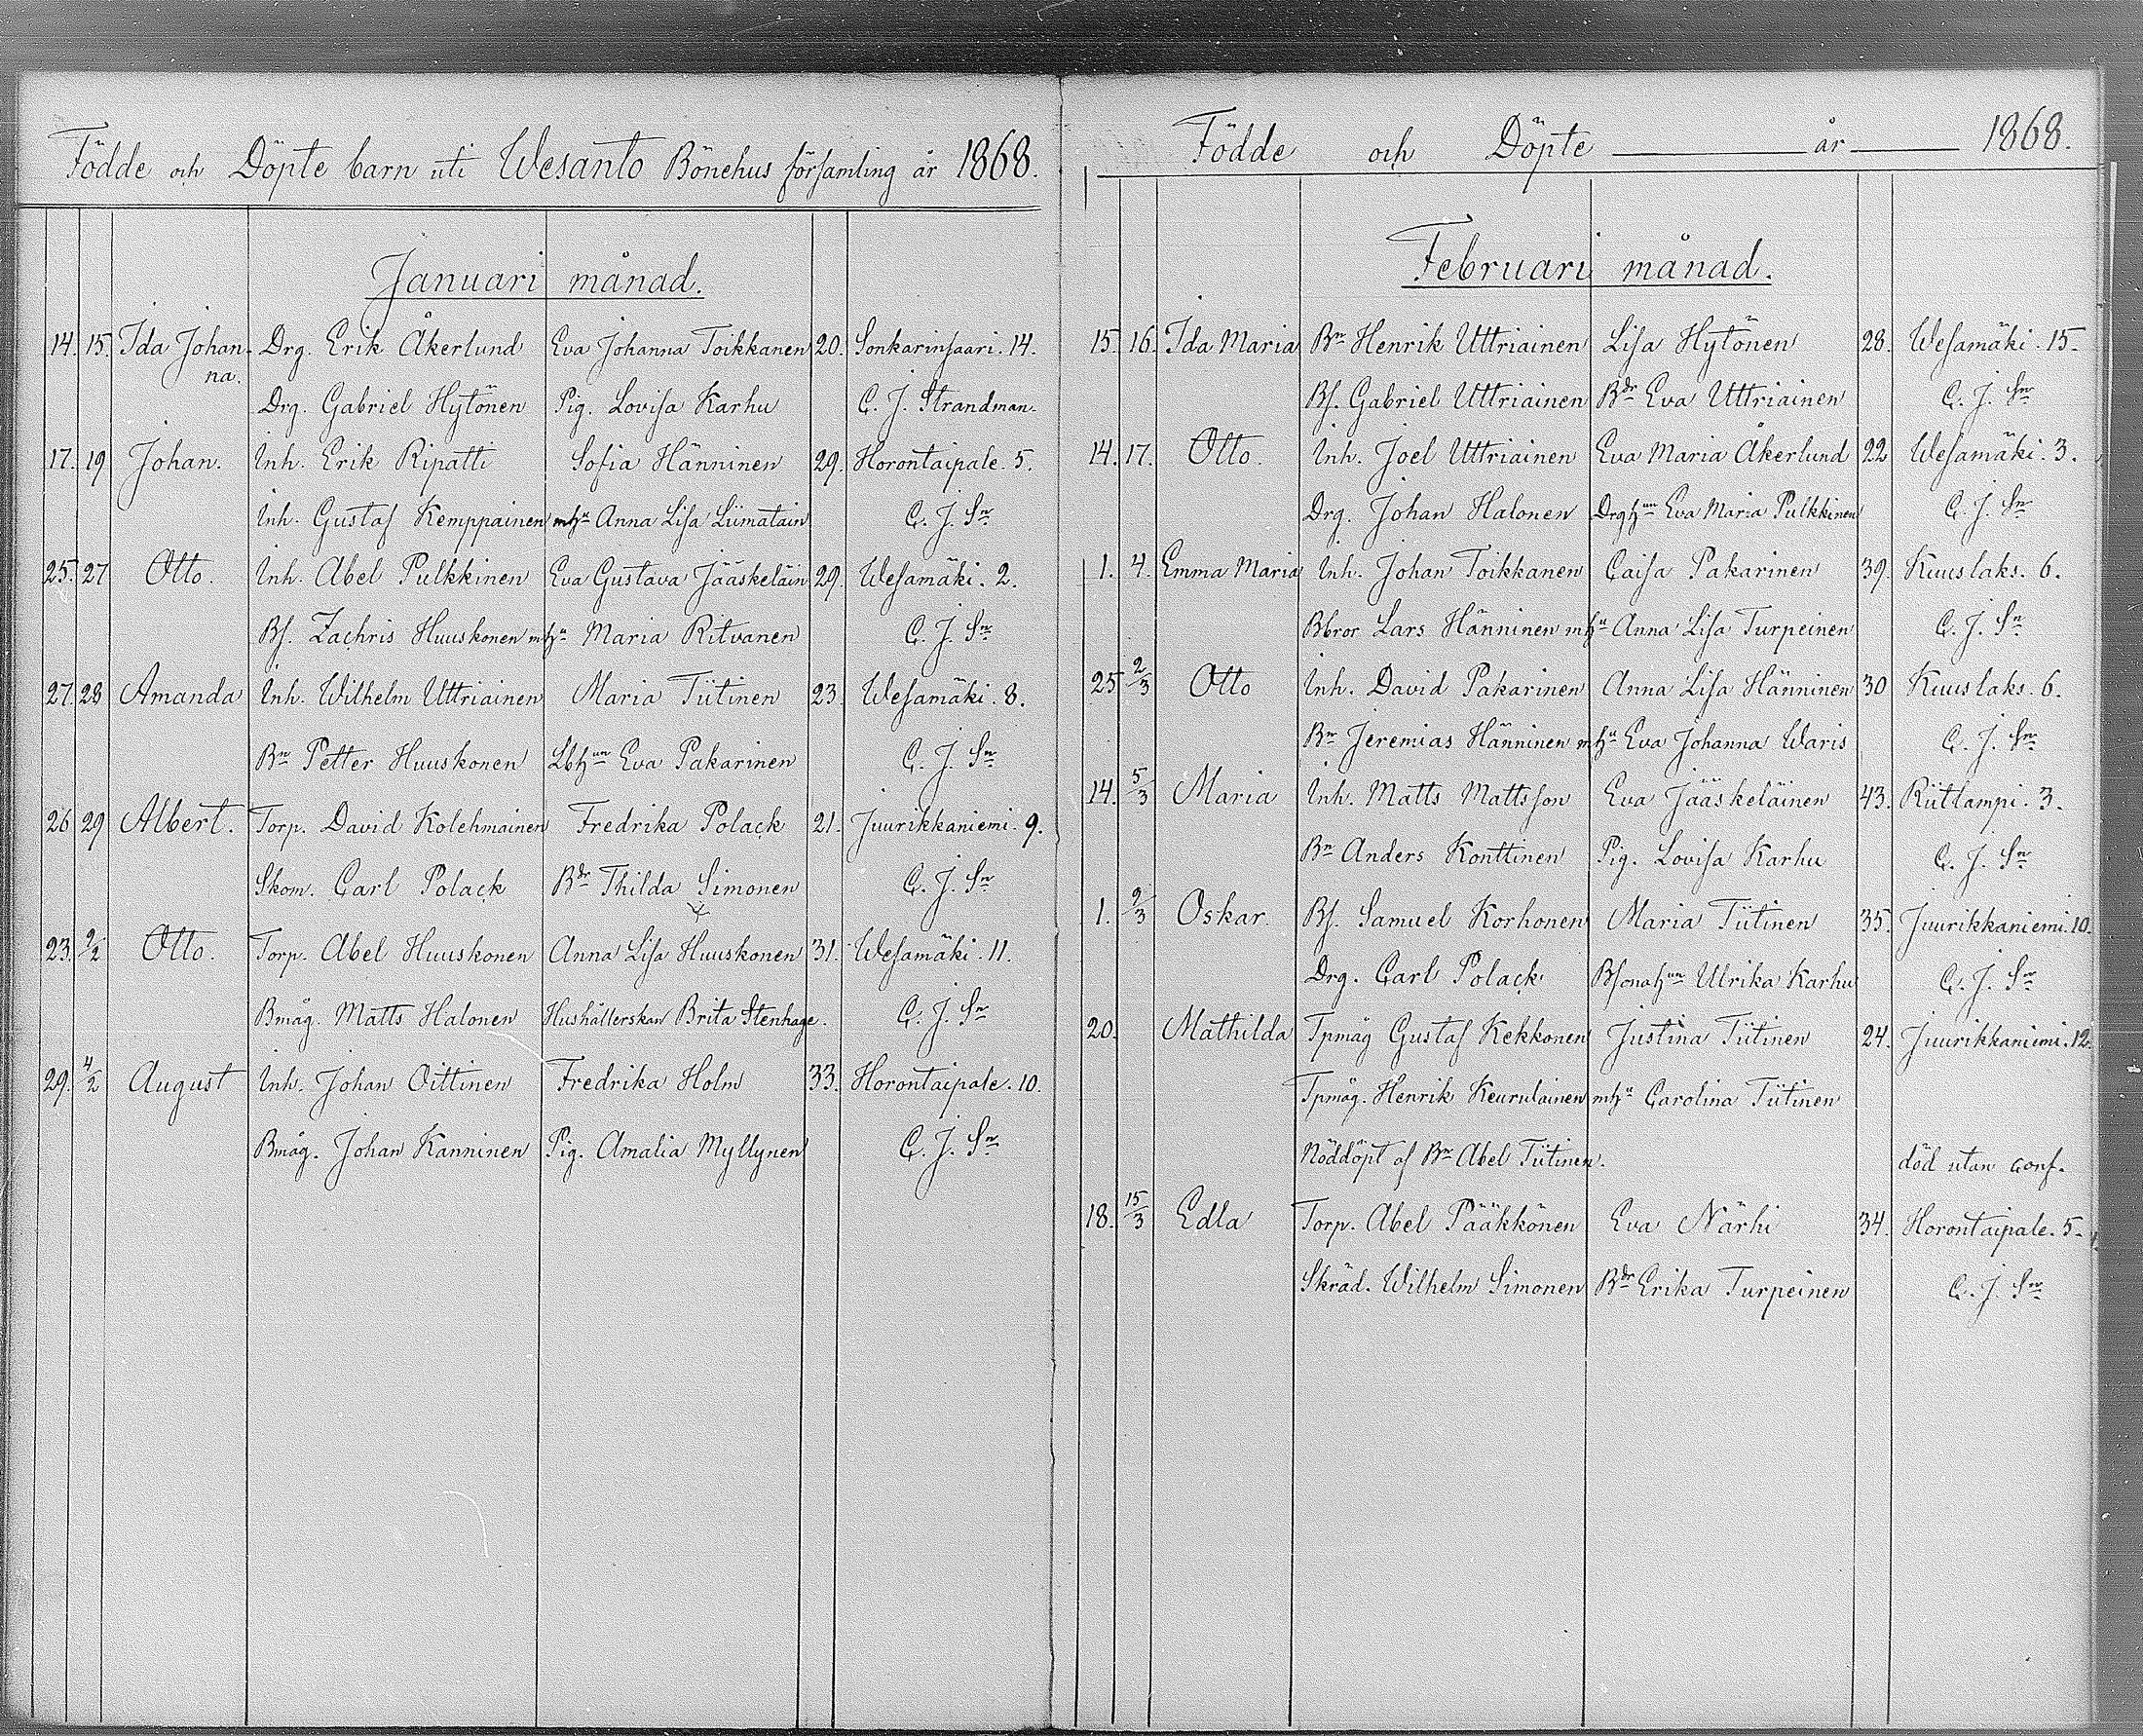 Födde och Döpte barn uti Wesanto Bönehus församling år 1868.
Januari månad.
14. 15. Ida Johan- Drg. Erik Åkerlund Eva Johanna Toikkanen 20. Sonkarinsaari. 14.
na. Drg. Gabriel Hytönen Pig. Lovisa Karhu C. J. Strandman.
17. 19 Johan. Inh. Erik Ripatti Sofia Hänninen 29. Horontaipale. 5.
Inh. Gustaf Kemppainen mhu Anna Lisa Liimatain C. J. Sn
25. 27 Otto. Inh. Abel Pulkkinen Eva Gustava Jääskeläin 29. Wesamäki. 2.
Bs. Zachris Huuskonen mhu Maria Ritvanen C. J. Sn
27. 28 Amanda Inh. Wilhelm Uttriainen Maria Tiitinen 23. Wesamäki. 8.
Bn Petter Huuskonen Lbhun Eva Pakarinen C. J. Sn
26 29 Albert. Torp. David Kolehmainen Fredrika Polack 21. Juurikkaniemi. 9.
Skom. Carl Polack Bdr Thilda Simonen C. J. Sn
23. 2/2 Otto. Torp. Abel Huuskonen Anna Lisa Huuskonen 31. Wesamäki. 11.
Bmåg. Matts Halonen Hushållerskan Brita Stenhage. C. J. Sn
29. 4/2 August Inh. Johan Oittinen Fredrika Holm 33. Horontaipale. 10.
Bmåg. Johan Kanninen Pig. Amalia Myllynen C. J. Sn
Födde och Döpte år 1868.
Februari månad.
15. 16. Ida Maria Bn Henrik Uttriainen Lisa Hytönen 28. Wesamäki. 15.
Bs. Gabriel Uttriainen Bdr Eva Uttriainen C. J. Sn
14. 17. Otto. Inh. Joel Uttriainen Eva Maria Åkerlund 22 Wesamäki. 3.
Drg. Johan Halonen Drghun Eva Maria Pulkkinen C. J. Sn
1. 4. Emma Maria Inh. Johan Toikkanen Caisa Pakarinen 39. Kuuslaks. 6.
Bbror Lars Hänninen mhu Anna Lisa Turpeinen C. J. Sn
25 2/3 Otto Inh. David Pakarinen Anna Lisa Hänninen 30 Kuuslaks. 6.
Bn Jeremias Hänninen mhu Eva Johanna Waris C. J. Sn
14. 5/3 Maria Inh. Matts Mattsson Eva Jääskeläinen 43. Riitlampi. 3.
Bn Anders Konttinen Pig. Lovisa Karhu C. J. Sn
1. 2/3 Oskar. Bs. Samuel Korhonen Maria Tiitinen 35. Juurikkaniemi. 10.
Drg. Carl Polack Bsonahun Ulrika Karhu C. J. Sn
20. Mathilda Tpmåg Gustaf Kekkonen Justina Tiitinen 24. Juurikkaniemi. 12.
Tpmåg. Henrik Keurulainen mhu Carolina Tiitinen
Nöddöpt af Bn Abel Tiitinen. död utan conf.
18. 15/3 Edla Torp. Abel Pääkkönen Eva Närhi 34. Horontaipale. 5.
Skräd. Wilhelm Simonen Bdr Erika Turpeinen C. J. Sn